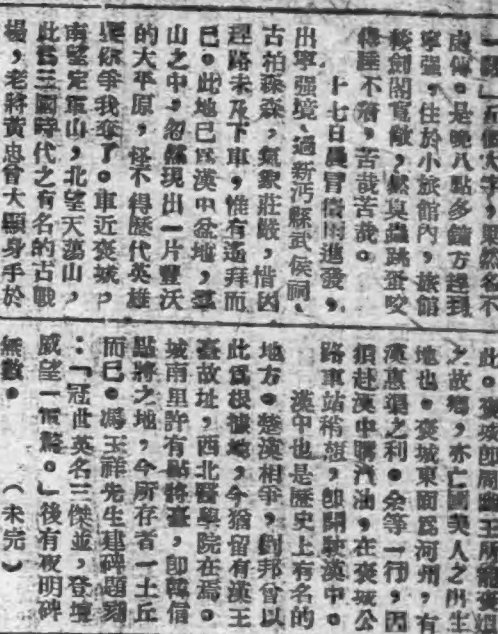 一關」五個大字,果然名不
虛傳。是晚八點多鐘方趕到
寧強,住於小旅館內,旅館
較劍閣寬敞,然臭蟲跳蚤咬
得睡不着,苦哉苦哉。
十七日晨冒微雨進發,
出寧強境、過新沔縣武侯祠、
古柏森森,氣象莊嚴,惜因
趕路未及下車,惟有遙拜而
已。此地已爲漢中盆地,羣
山之中,忽然現出一片豐沃
的大平原,怪不得歷代英雄
要你爭我奪了。車近褒城,
南望定軍山,北望天蕩山,
此皆三國時代之有名的古戰
場,老將黃忠曾大顯身手於
此。褒城卽周幽王所寵褒姒
之故鄉,亦亡國美人之出生
地也。褒城東面爲河州,有
漢惠渠之利。余等一行,因
須赴漢中購汽油,在褒城公
路車站稍憩,卽開駛漢中。
漢中也是歷史上有名的
地方。楚漢相爭,劉邦曾以
此爲根據地,今猶留有漢王
臺故址,西北醫學院在焉。
城南里許有點將臺,卽韓信
點將之地,今所存者一土丘
而已。馮玉祥先生建碑題刻
:「冠世英名三傑並,登壇
威望一軍驚。」後有夜明碑
無數。(未完)